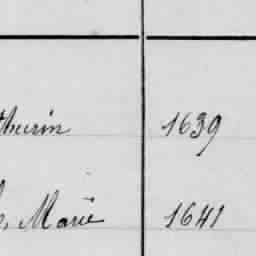 thurin 1639
Marie 1641